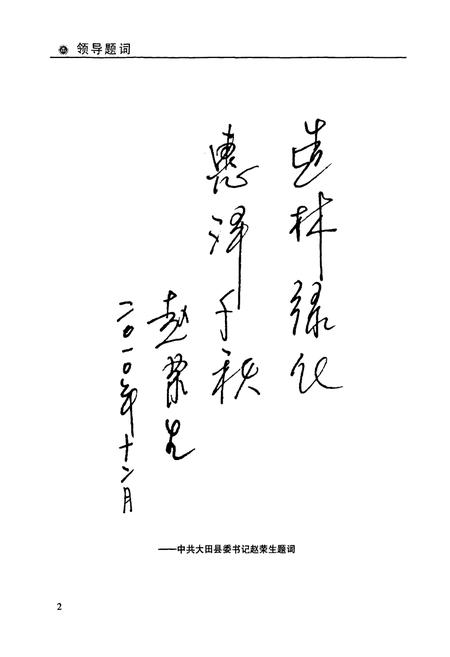 领导题词
造林绿化
惠泽千秋
赵荣生
二〇一〇年十二月
——中共大田县委书记赵荣生题词
2